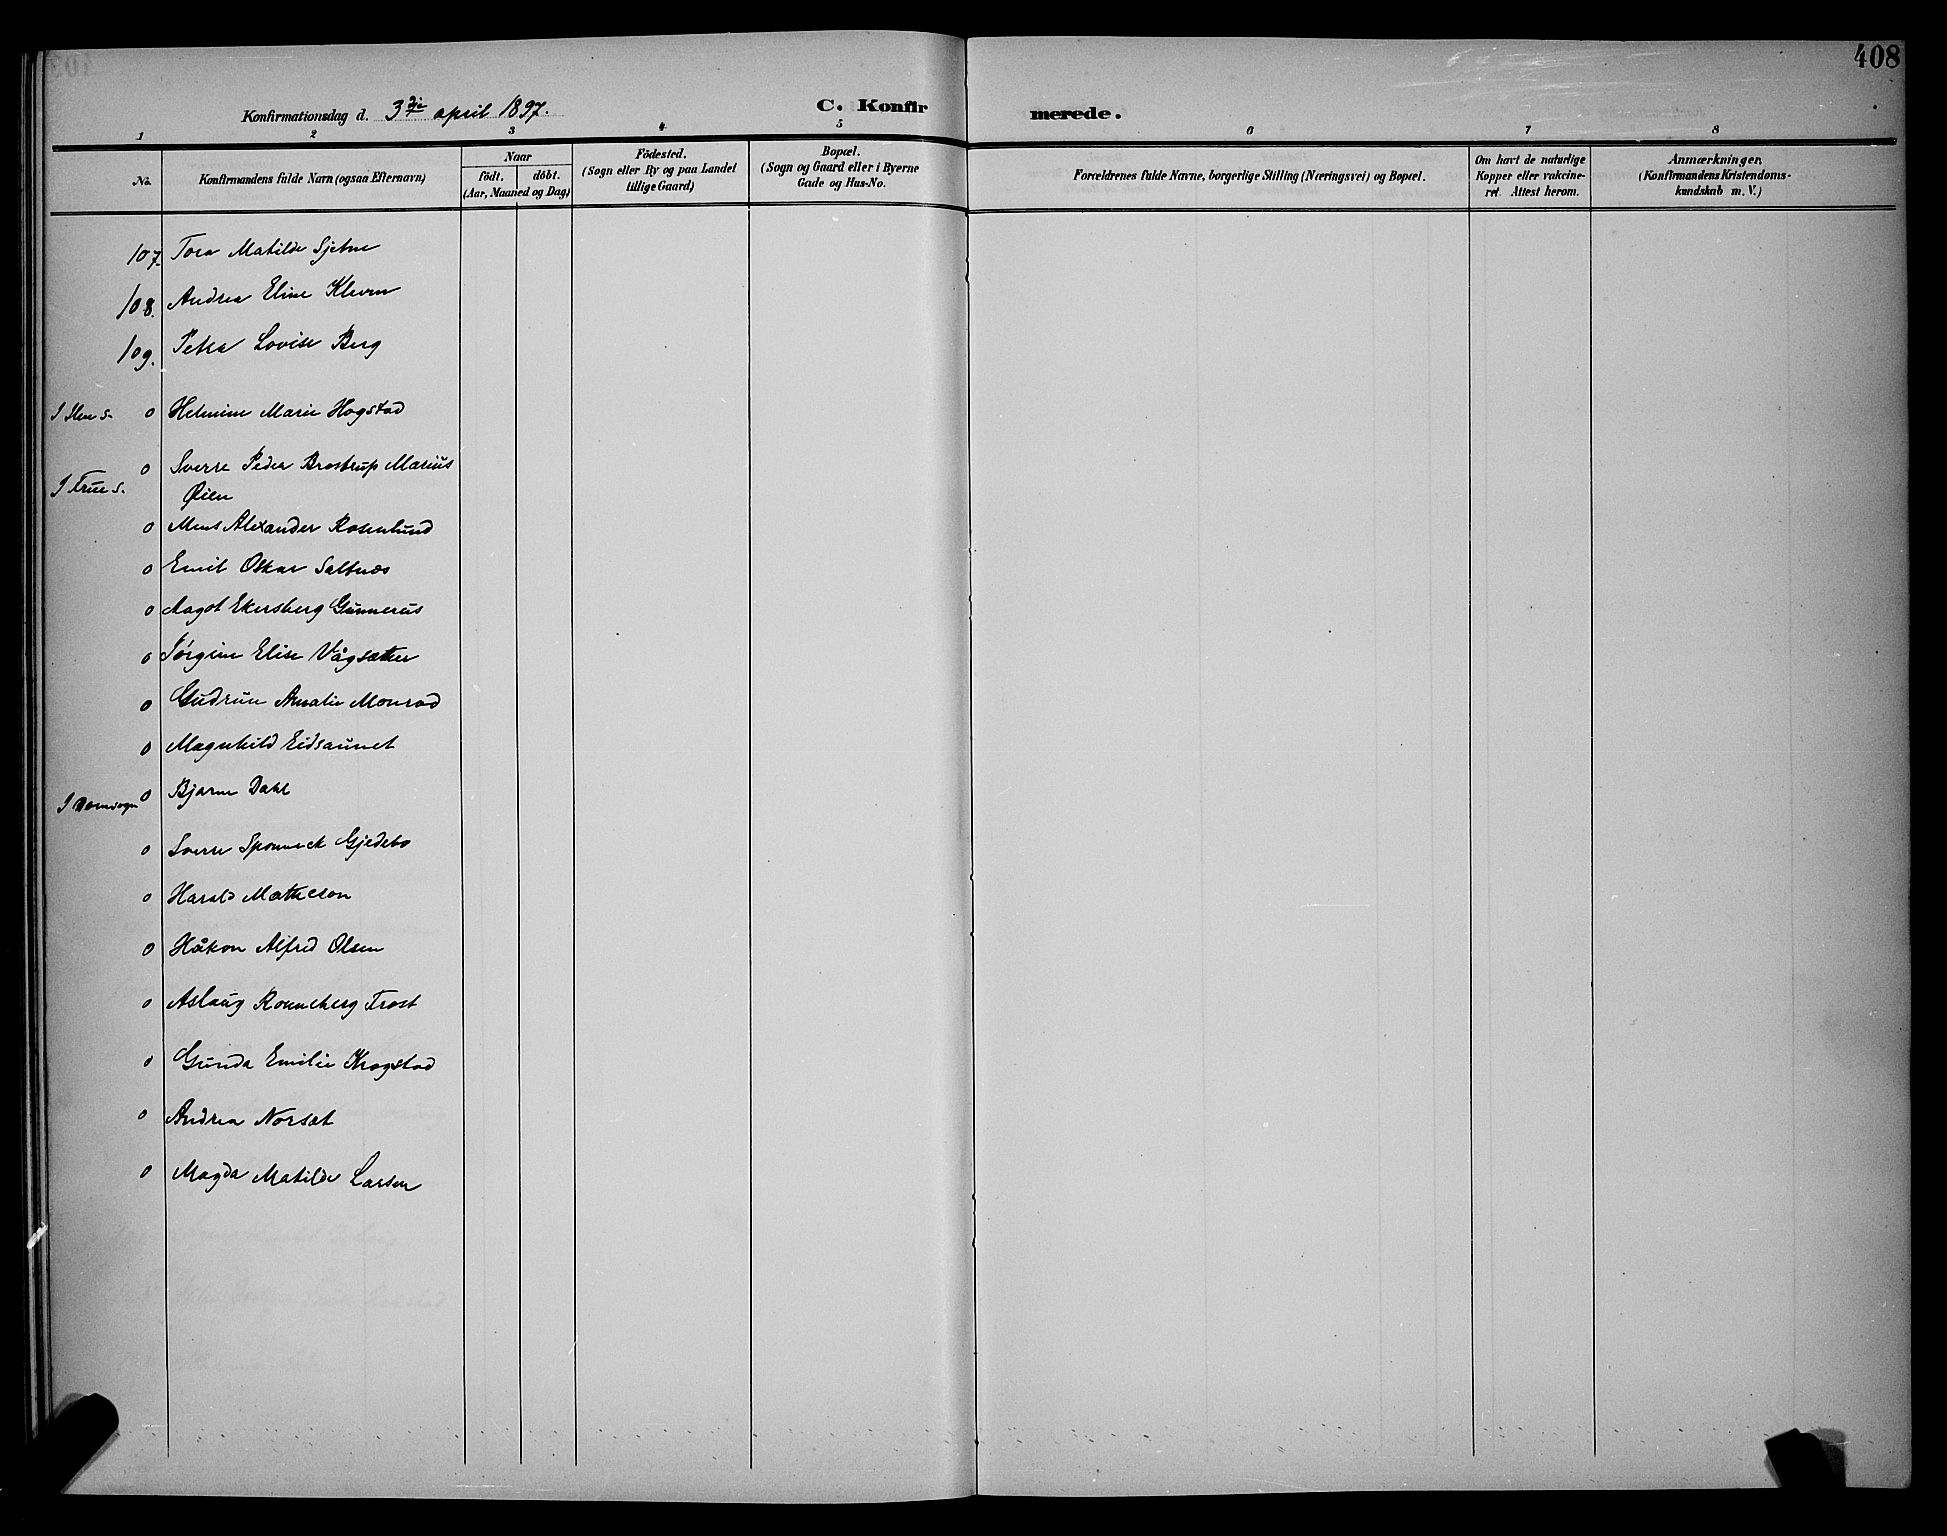 408
Konfirmationsdag d. 3die april 1897.
C. Konfirmerede.
1 2 3 4 5 6 7 8
No.
Konfirmandens fulde Navn (ogsaa Efternavn)
Naar
födt. döbt.
(Aar, Maaned og Dag)
Födested.
(Sogn eller By og paa Landet
tillige Gaard)
Bopæl.
(Sogn og Gaard eller i Byerne
Gade og Hus-No.
Forældrenes fulde Navne, borgerlige Stilling (Næringsvei) og Bopæl.
Om havt de naturlige
Kopper eller vakcine-
ret. Attest herom.
Anmærkninger.
(Konfirmandens Kristendoms-
kundskab m. V.)
107. Tora Matilde Sjetne
108. Andrea Eline Kleven
109. Petra Lovise Berg
I Ilen s. 0 Helmine Marie Hogstad
0 Sverre Peder Brostrup Marius
I Frue s. Øien
0 Mens Alexander Rosenlund
0 Emil Oskar Saltnæs
0 Aagot Ekersberg Gunnerus
0 Jørgine Elise Vågsæther
0 Gudrun Amalie Monrad
0 Magnhild Eidsaunet
0 Bjarne Dahl
I Domsogn
0 Sverre Sponneck Gjedebo
0 Harald Matheson
0 Håkon Alfred Olsen
0 Aslaug Ronneberg Frost
0 Gunda Emilie Krogstad
0 Andrea Norset
0 Magda Matilde Larsen